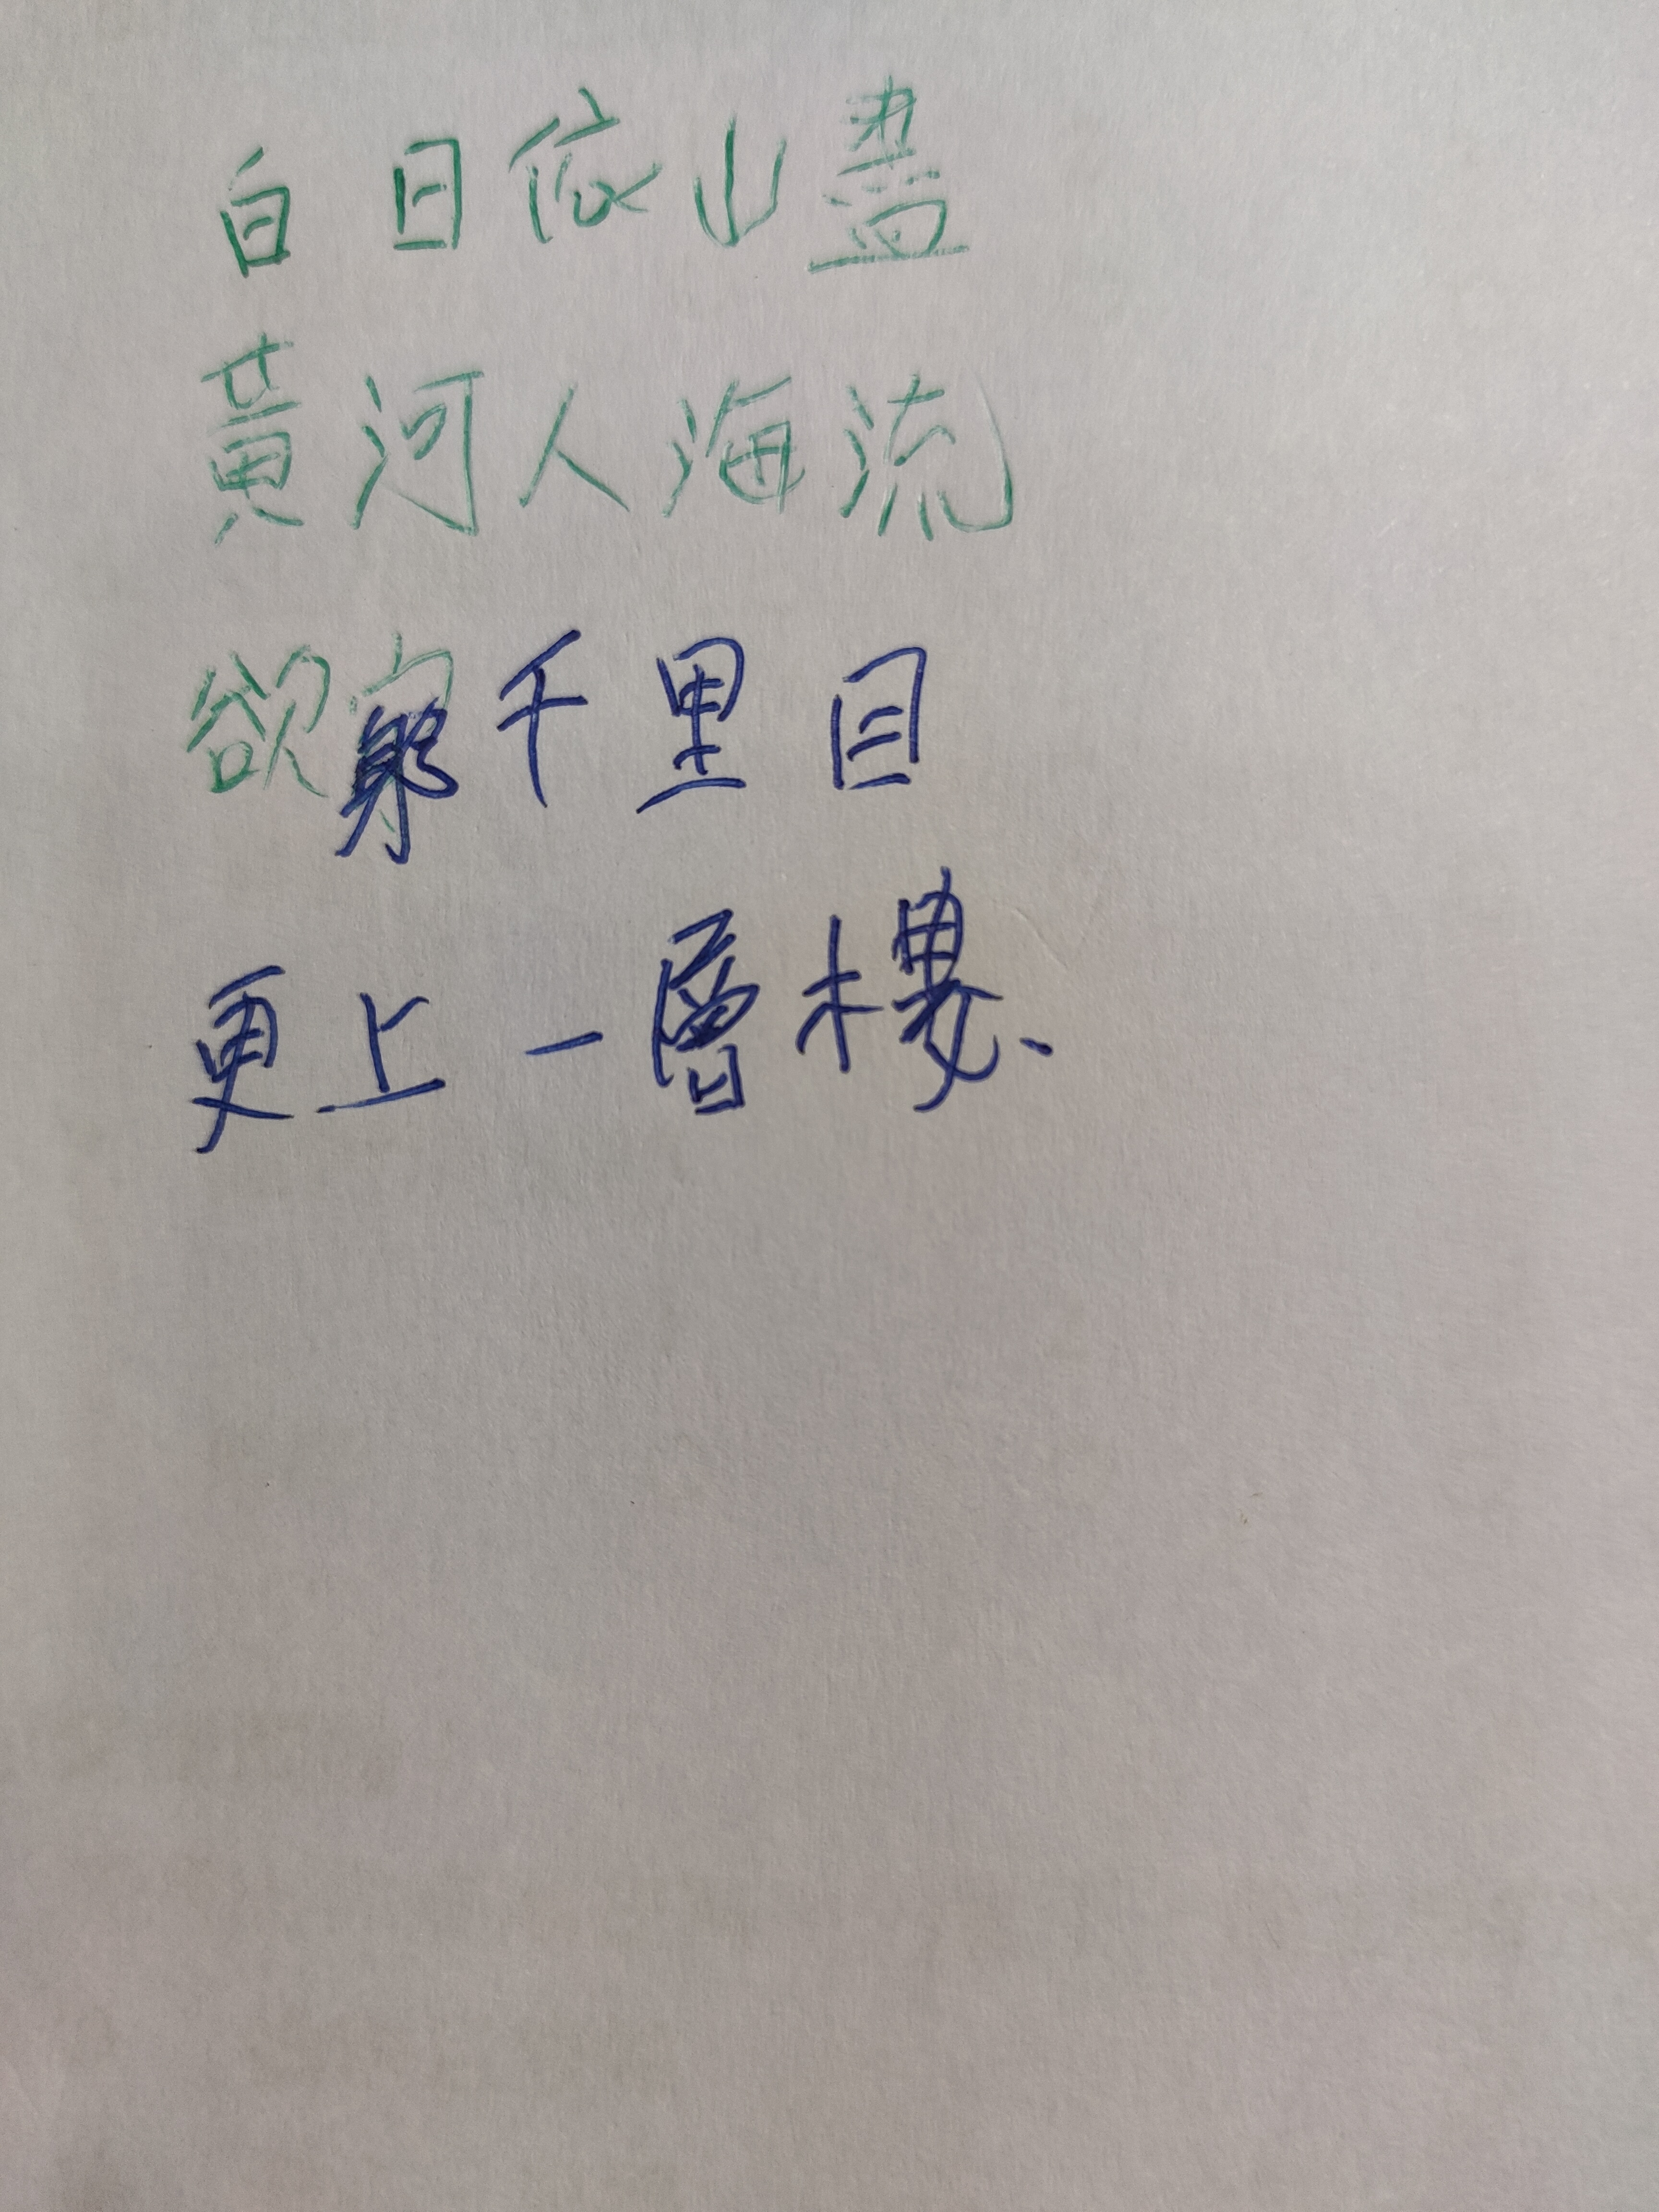 白日依山盡
黃河人海流
欲窮千里目
更上一層樓、